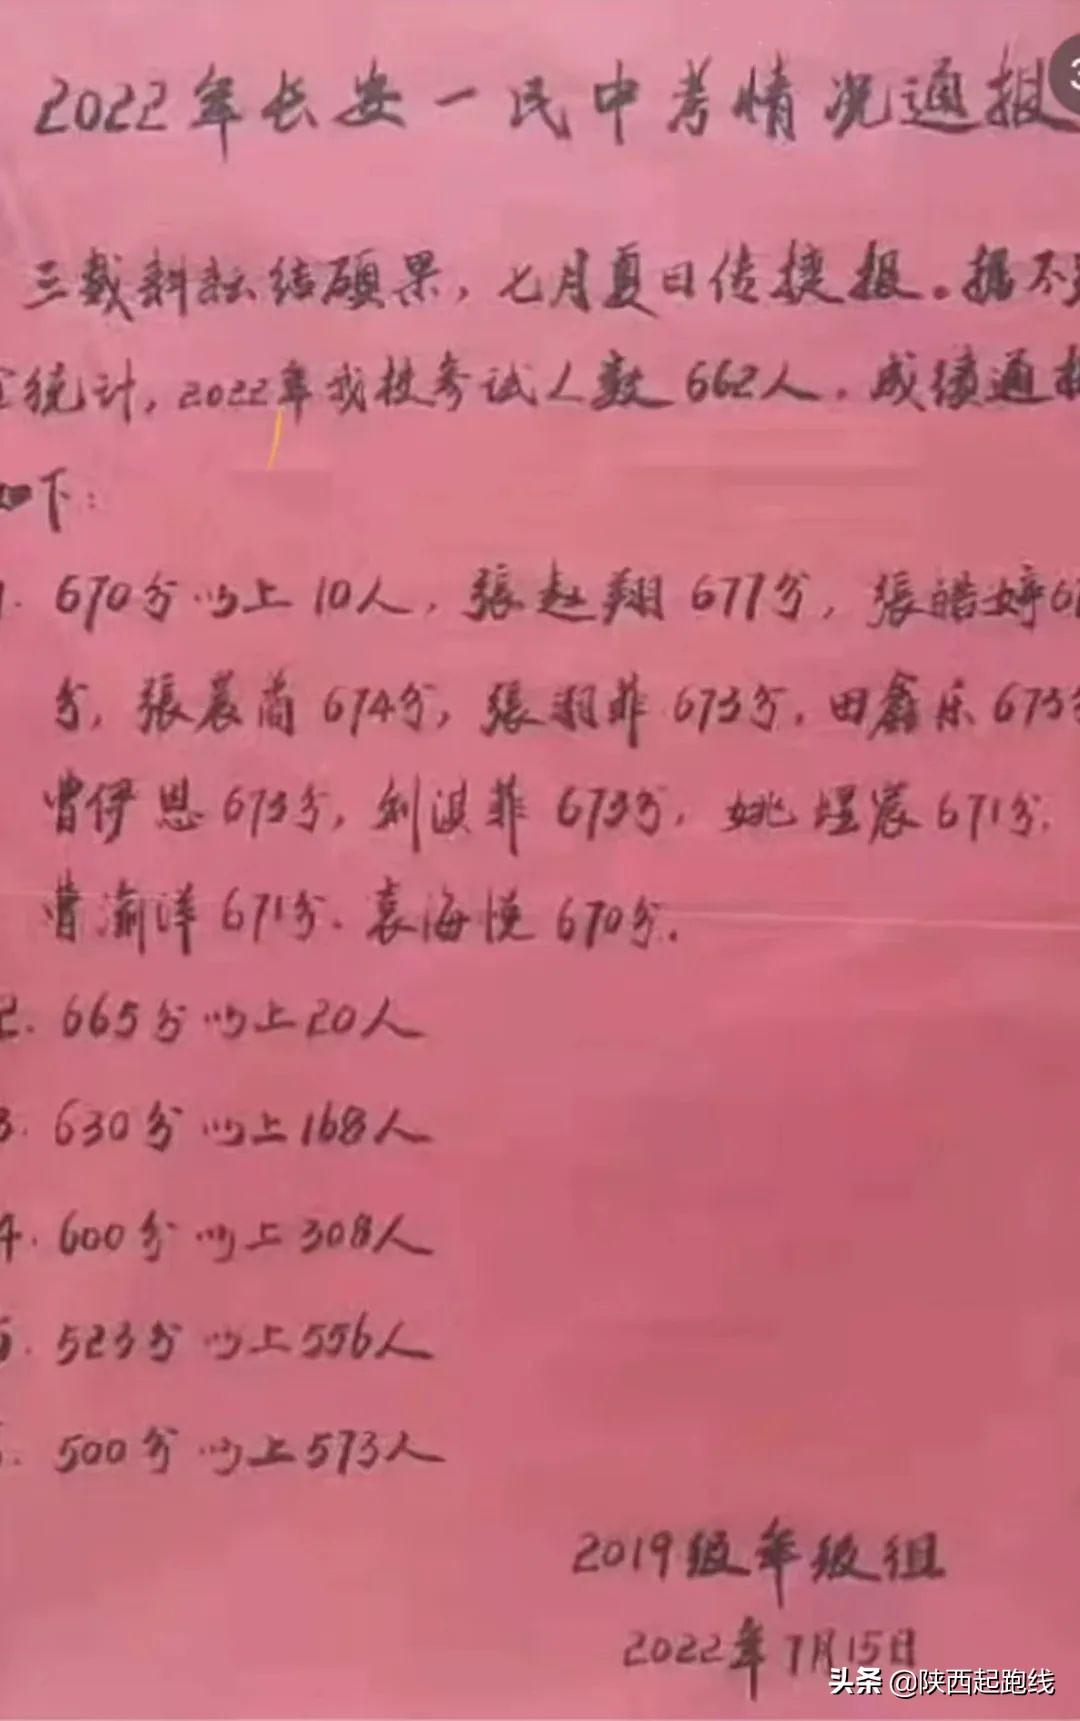 2022年长安一民中考情况通报
三载耕耘结硕果，七月夏日传捷报。据不
统计，2022年我校考试人数662人，成绩通报
如下：
1. 670分以上10人，張赵翔677分，張皓婷
分，張晨茼674分，張羽菲673分，田鑫乐673分
曾伊恩673分，刘淇菲673分，姚煜宸671分，
曹渝洋671分，袁海悦670分。
2. 665分以上20人
3. 630分以上168人
4. 600分以上308人
5. 523分以上556人
500分以上573人
2019级年级组
2022年7月15日
头条 @陕西起跑线